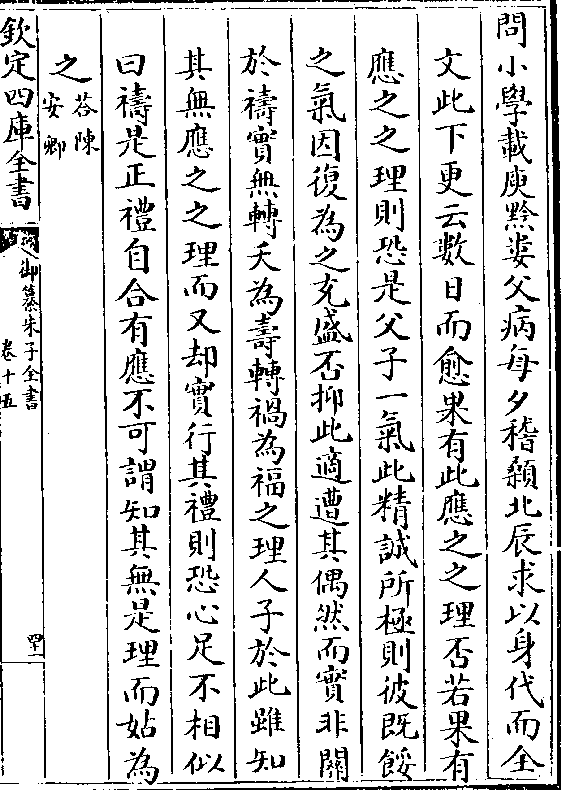 問小學載庾黔婁父病每夕稽顙北辰求以身代而全
文此下更云數日而愈果有此應之之理否若果有
應之之理則恐是父子一氣此精誠所極則彼既餒
之氣因復為之充盛否抑此適遭其偶然而實非關
於禱實無轉夭為壽轉禍為福之理人子於此雖知
其無應之之理而又却實行其禮則恐心足不相似
曰禱是正禮自合有應不可謂知其無是理而姑為
之答陳安卿
欽定四庫全書
御纂朱子全書
卷十五